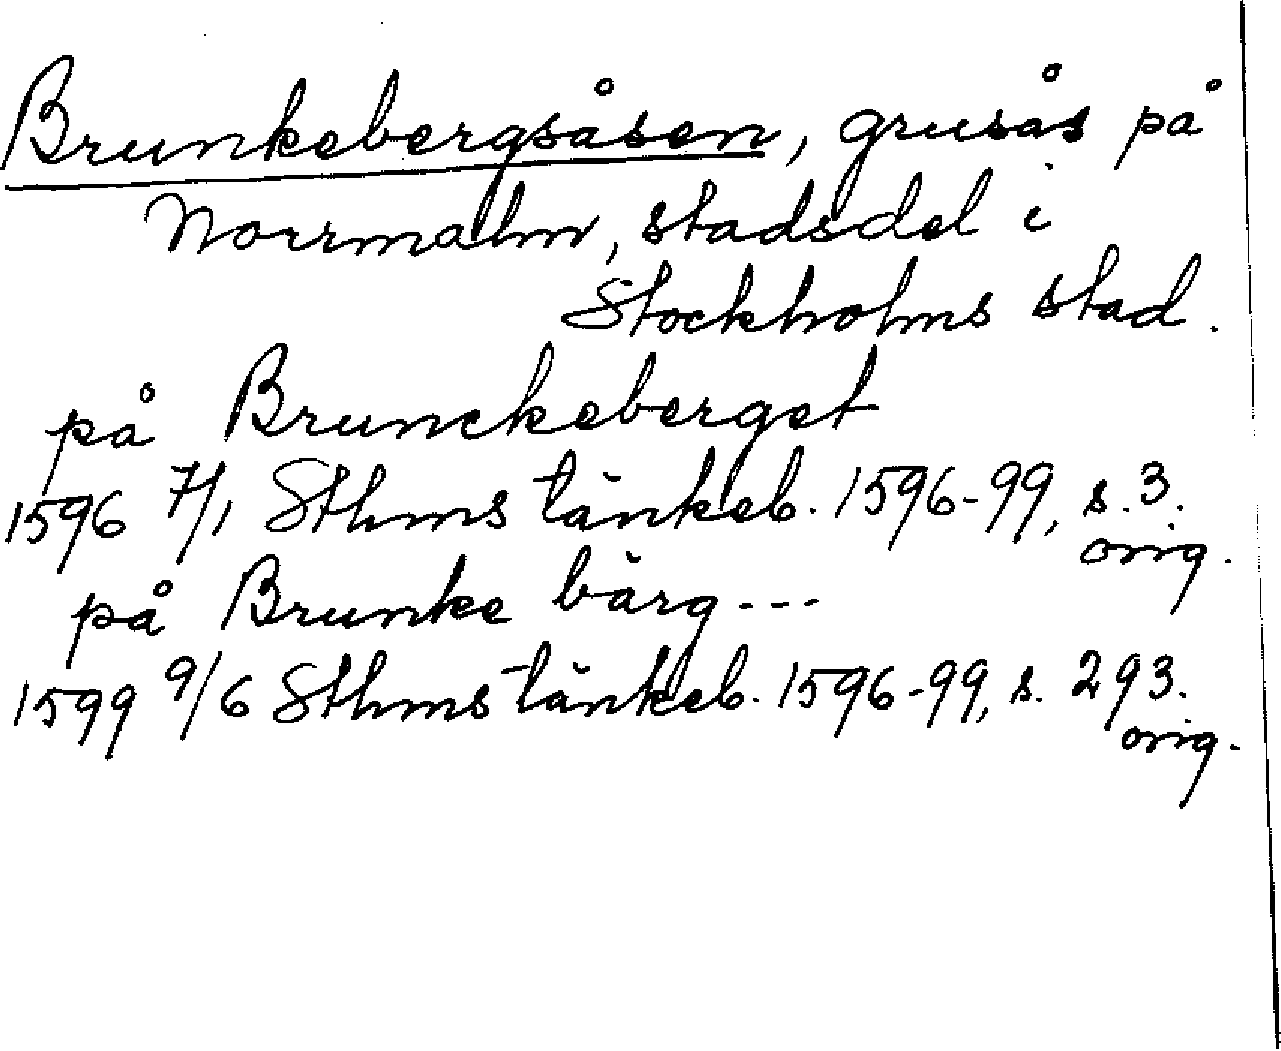 Brunkebergsåsen, grusås på
Norrmalm, stadsdel i
Stockholms stad.
på Brunckeberget
1596 7/1 Sthms tänkeb. 1596-99, s. 3.
orig.
på Brunke bärg---
1599 9/6 Sthms tänkeb. 1596-99, s. 293.
orig.